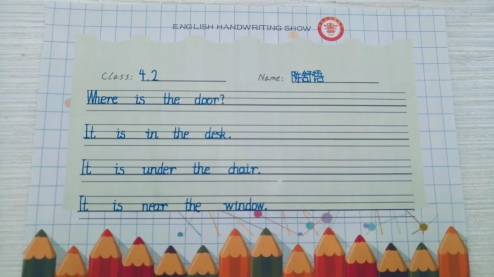 ENGLISH HANDWRITING SHOW
Class: 4.2 Name: 陈舒悟
Where is the door?
It is in the desk.
It is under the chair.
It is near the window.